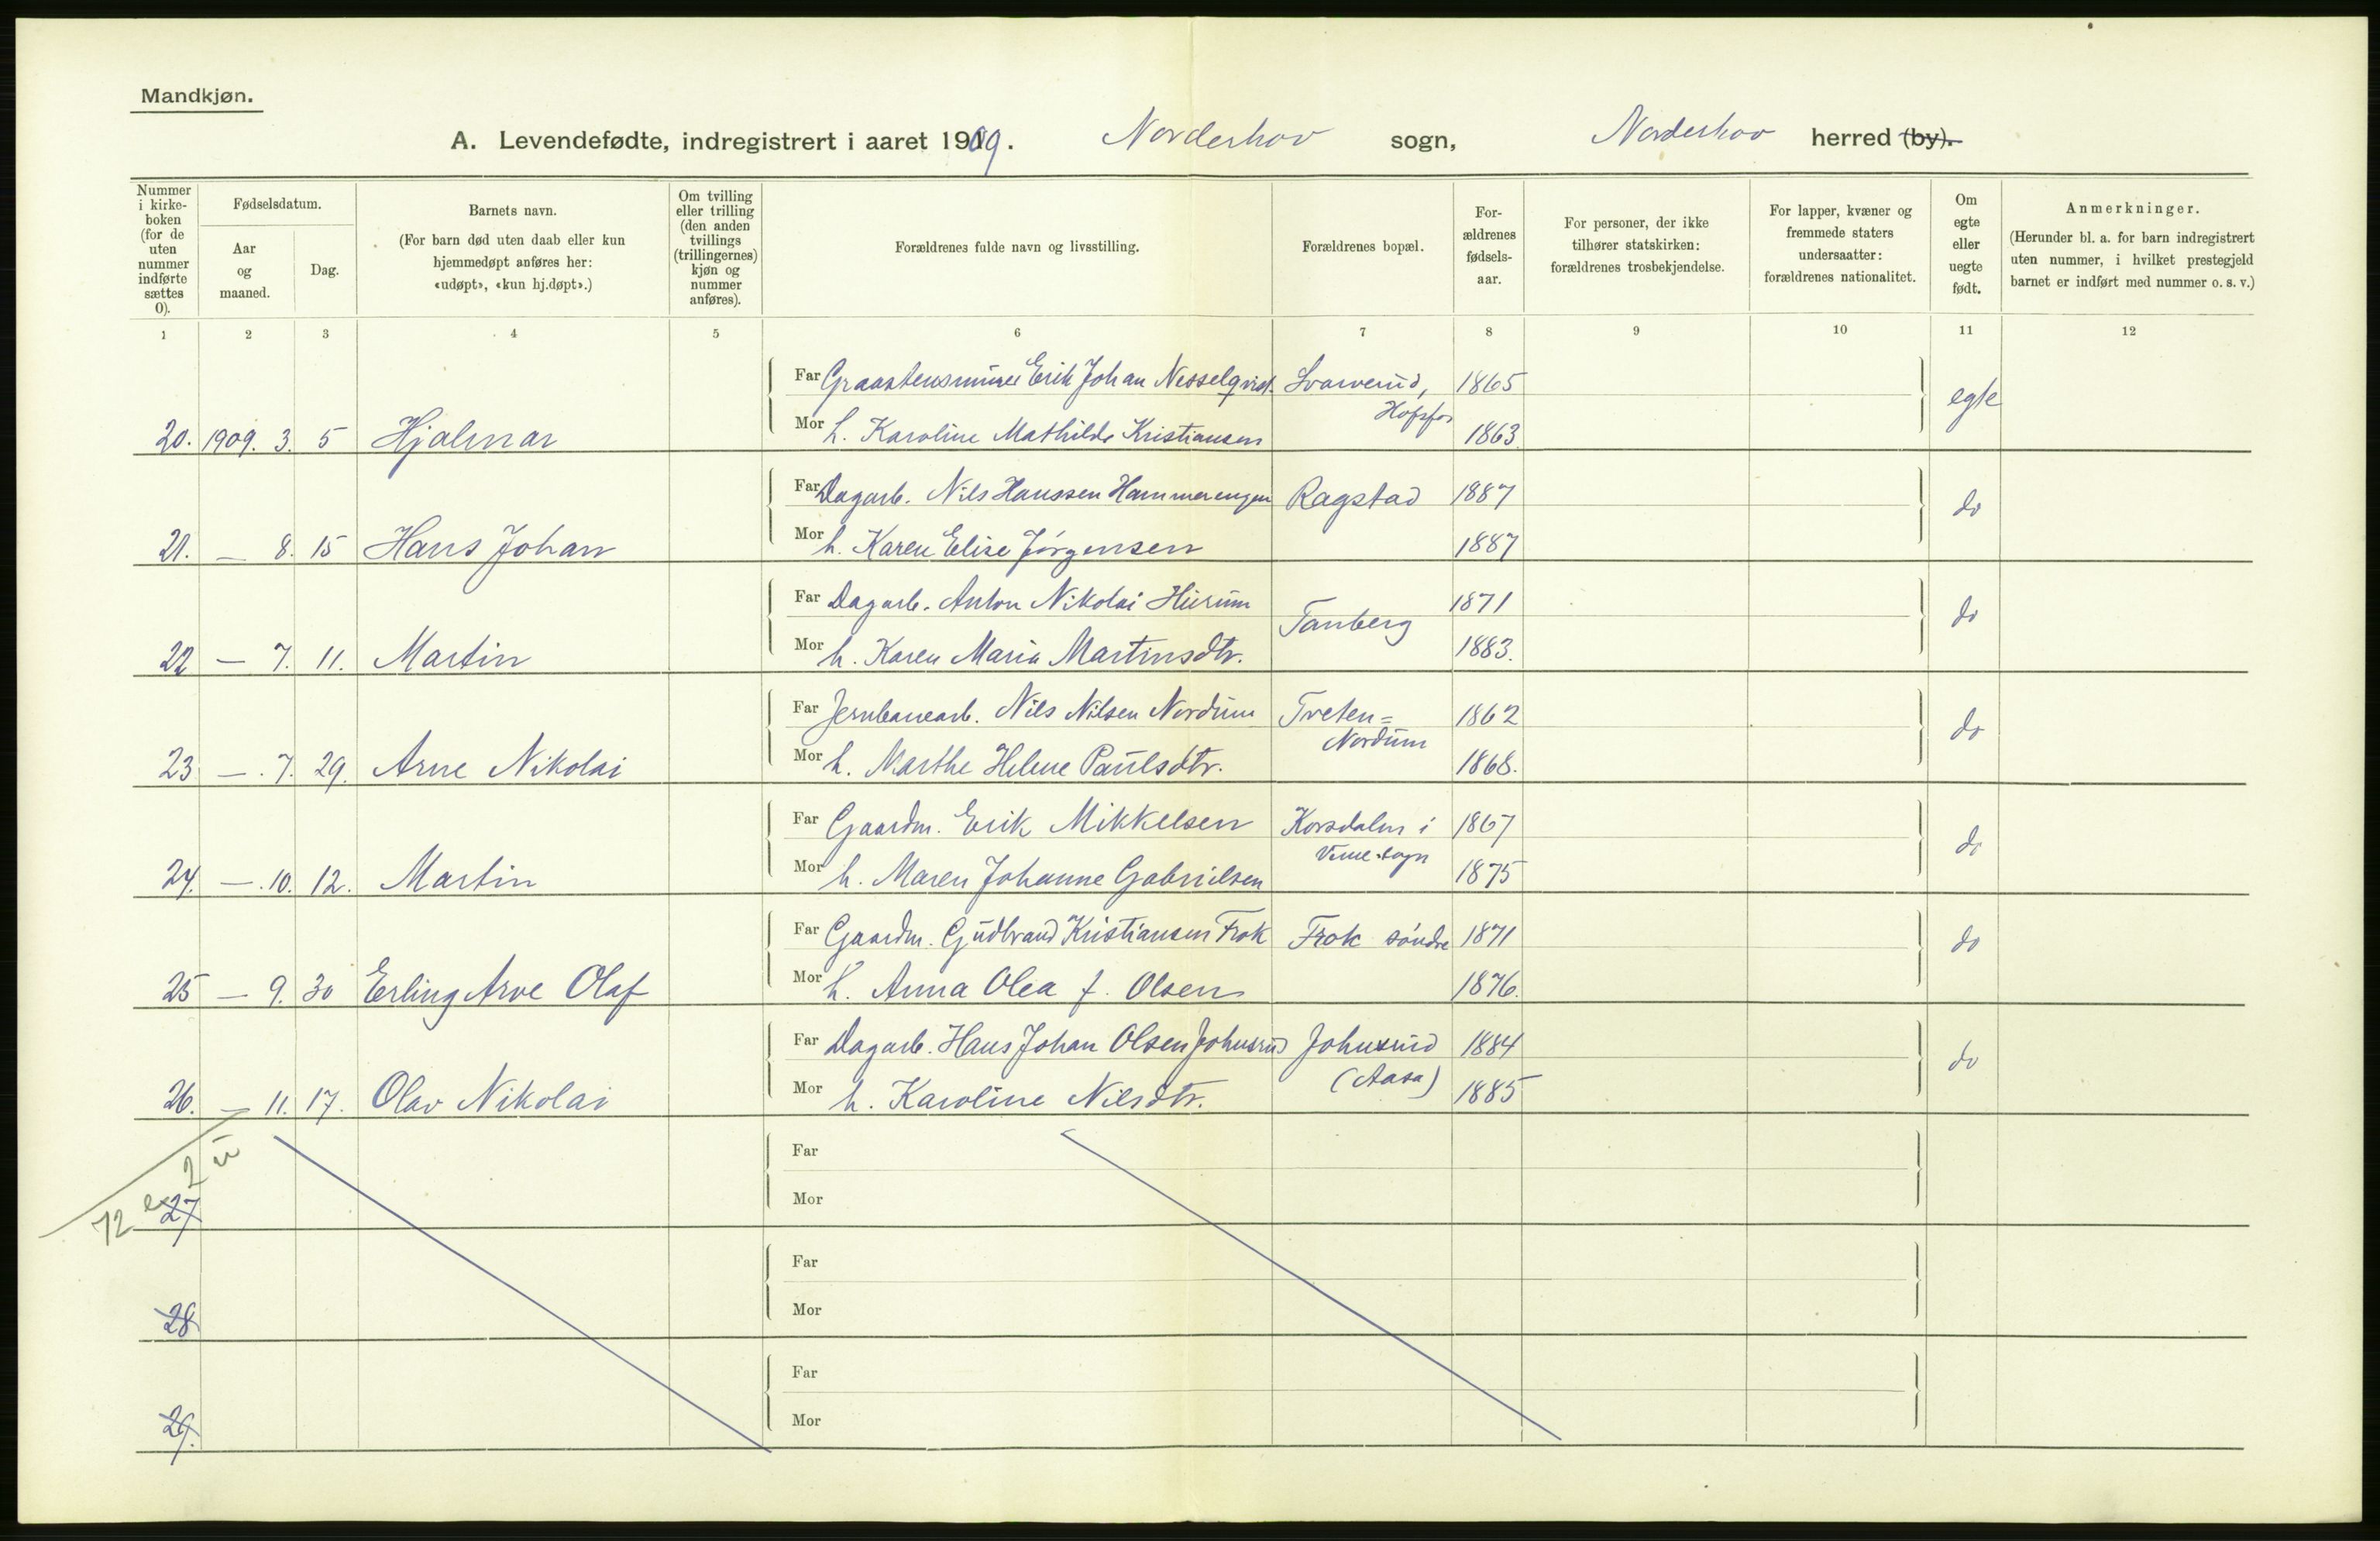 Mandkjøn.
A. Levendefødte, indregistrert i aaret 1909. Norderhov sogn, Norderhov herred (by).
Nummer i kirke-boken (for de uten nummer indførte sættes 0).
Fødselsdatum.
Aar og maaned.
Dag.
Barnets navn.
(For barn død uten daab eller kun hjemmedøpt anføres her: «udøpt», «kun hj.døpt».)
Om tvilling eller trilling (den anden tvillings (trillingernes) kjøn og nummer anføres).
Forældrenes fulde navn og livsstilling.
Forældrenes bopæl.
For-ældrenes fødsels-aar.
For personer, der ikke tilhører statskirken: forældrenes trosbekjendelse.
For lapper, kvæner og fremmede staters undersaatter: forældrenes nationalitet.
Om egte eller uegte født.
Anmerkninger.
(Herunder bl. a. for barn indregistrert uten nummer, i hvilket prestegjeld barnet er indført med nummer o. s. v.)
1 2 3 4 5 6 7 8 9 10 11 12
Far Graastensmurer Erik Johan Nesselqvist. 1865 egte
Hofsfos
20. 1909. 3. 5 Hjalmar Mor h. Karoline Mathilde Kristiansen 1863.
Far Dagarb. Nils Hanssen Hammerengen Ragstad 1887 do
21. — 8. 15 Hans Johan Mor h. Karen Elise Jörgensen 1887
Far Dagarb. Anton Nikolai Hurum Tanberg 1871 do
22 — 7. 11. Martin Mor h. Karen Maria Martinsdtr. 1883.
Far Jernbanearb. Nils Nilsen Nordum Treten= 1862 do
Nordum
23 — . 7. 29. Arne Nikolai Mor h. Marthe Helene Paulsdtr. 1868.
Far Gaardm. Erik Mikkelsen Korsdalen i 1867 do
Veme sogn
24. — . 10. 12. Martin Mor h. Maren Johanne Gabrielsen 1875
Far Gaardm. Gudbrand Kristiansen Frok Frok söndre 1871 do
25 — 9. 30 Erling Arve Olaf Mor h. Anna Olea f. Olsen 1876.
Far Dagarb. Hans Johan Olsen Johnsrud Johnsrud 1884 do
(Aasa)
26. — 11. 17. Olav Nikolai Mor h. Karoline Nilsdtr. 1885
Far
72 e 2 u
27 Mor
Far
28 Mor
Far
29. Mor